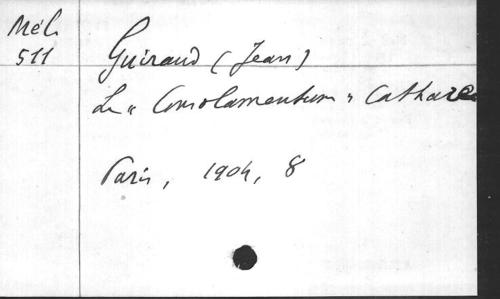 Mél.
511
Guiraud (Jean)
Le « Consolamentum » Cathare
Paris, 1904, 8